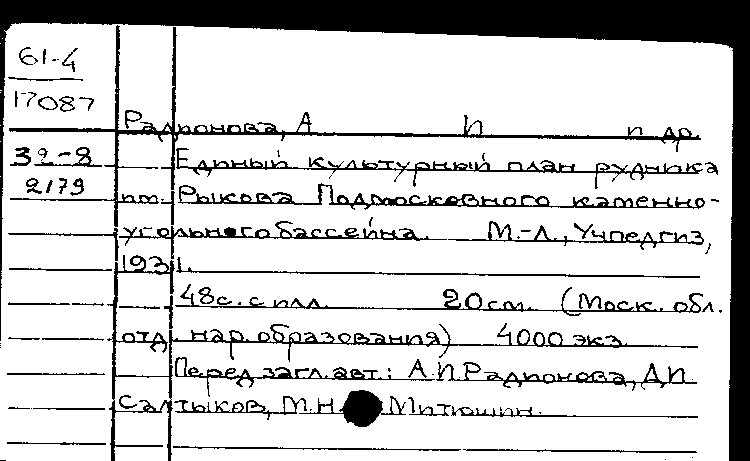 61-4
17087
Радионова, А И и др.
32-8
2179
Единый культурный план рудника
им. Рыкова Подмосковного каменно-
угольного бассейна. М.-Л., Учпедгиз,
1931.
48с. с илл. 20см. (Моск. обл.
отд. нар. образования) 4000 экз.
Перед загл. авт.: А.И. Радионова, Д.И.
Салтыков, М.Н. Митюшин.